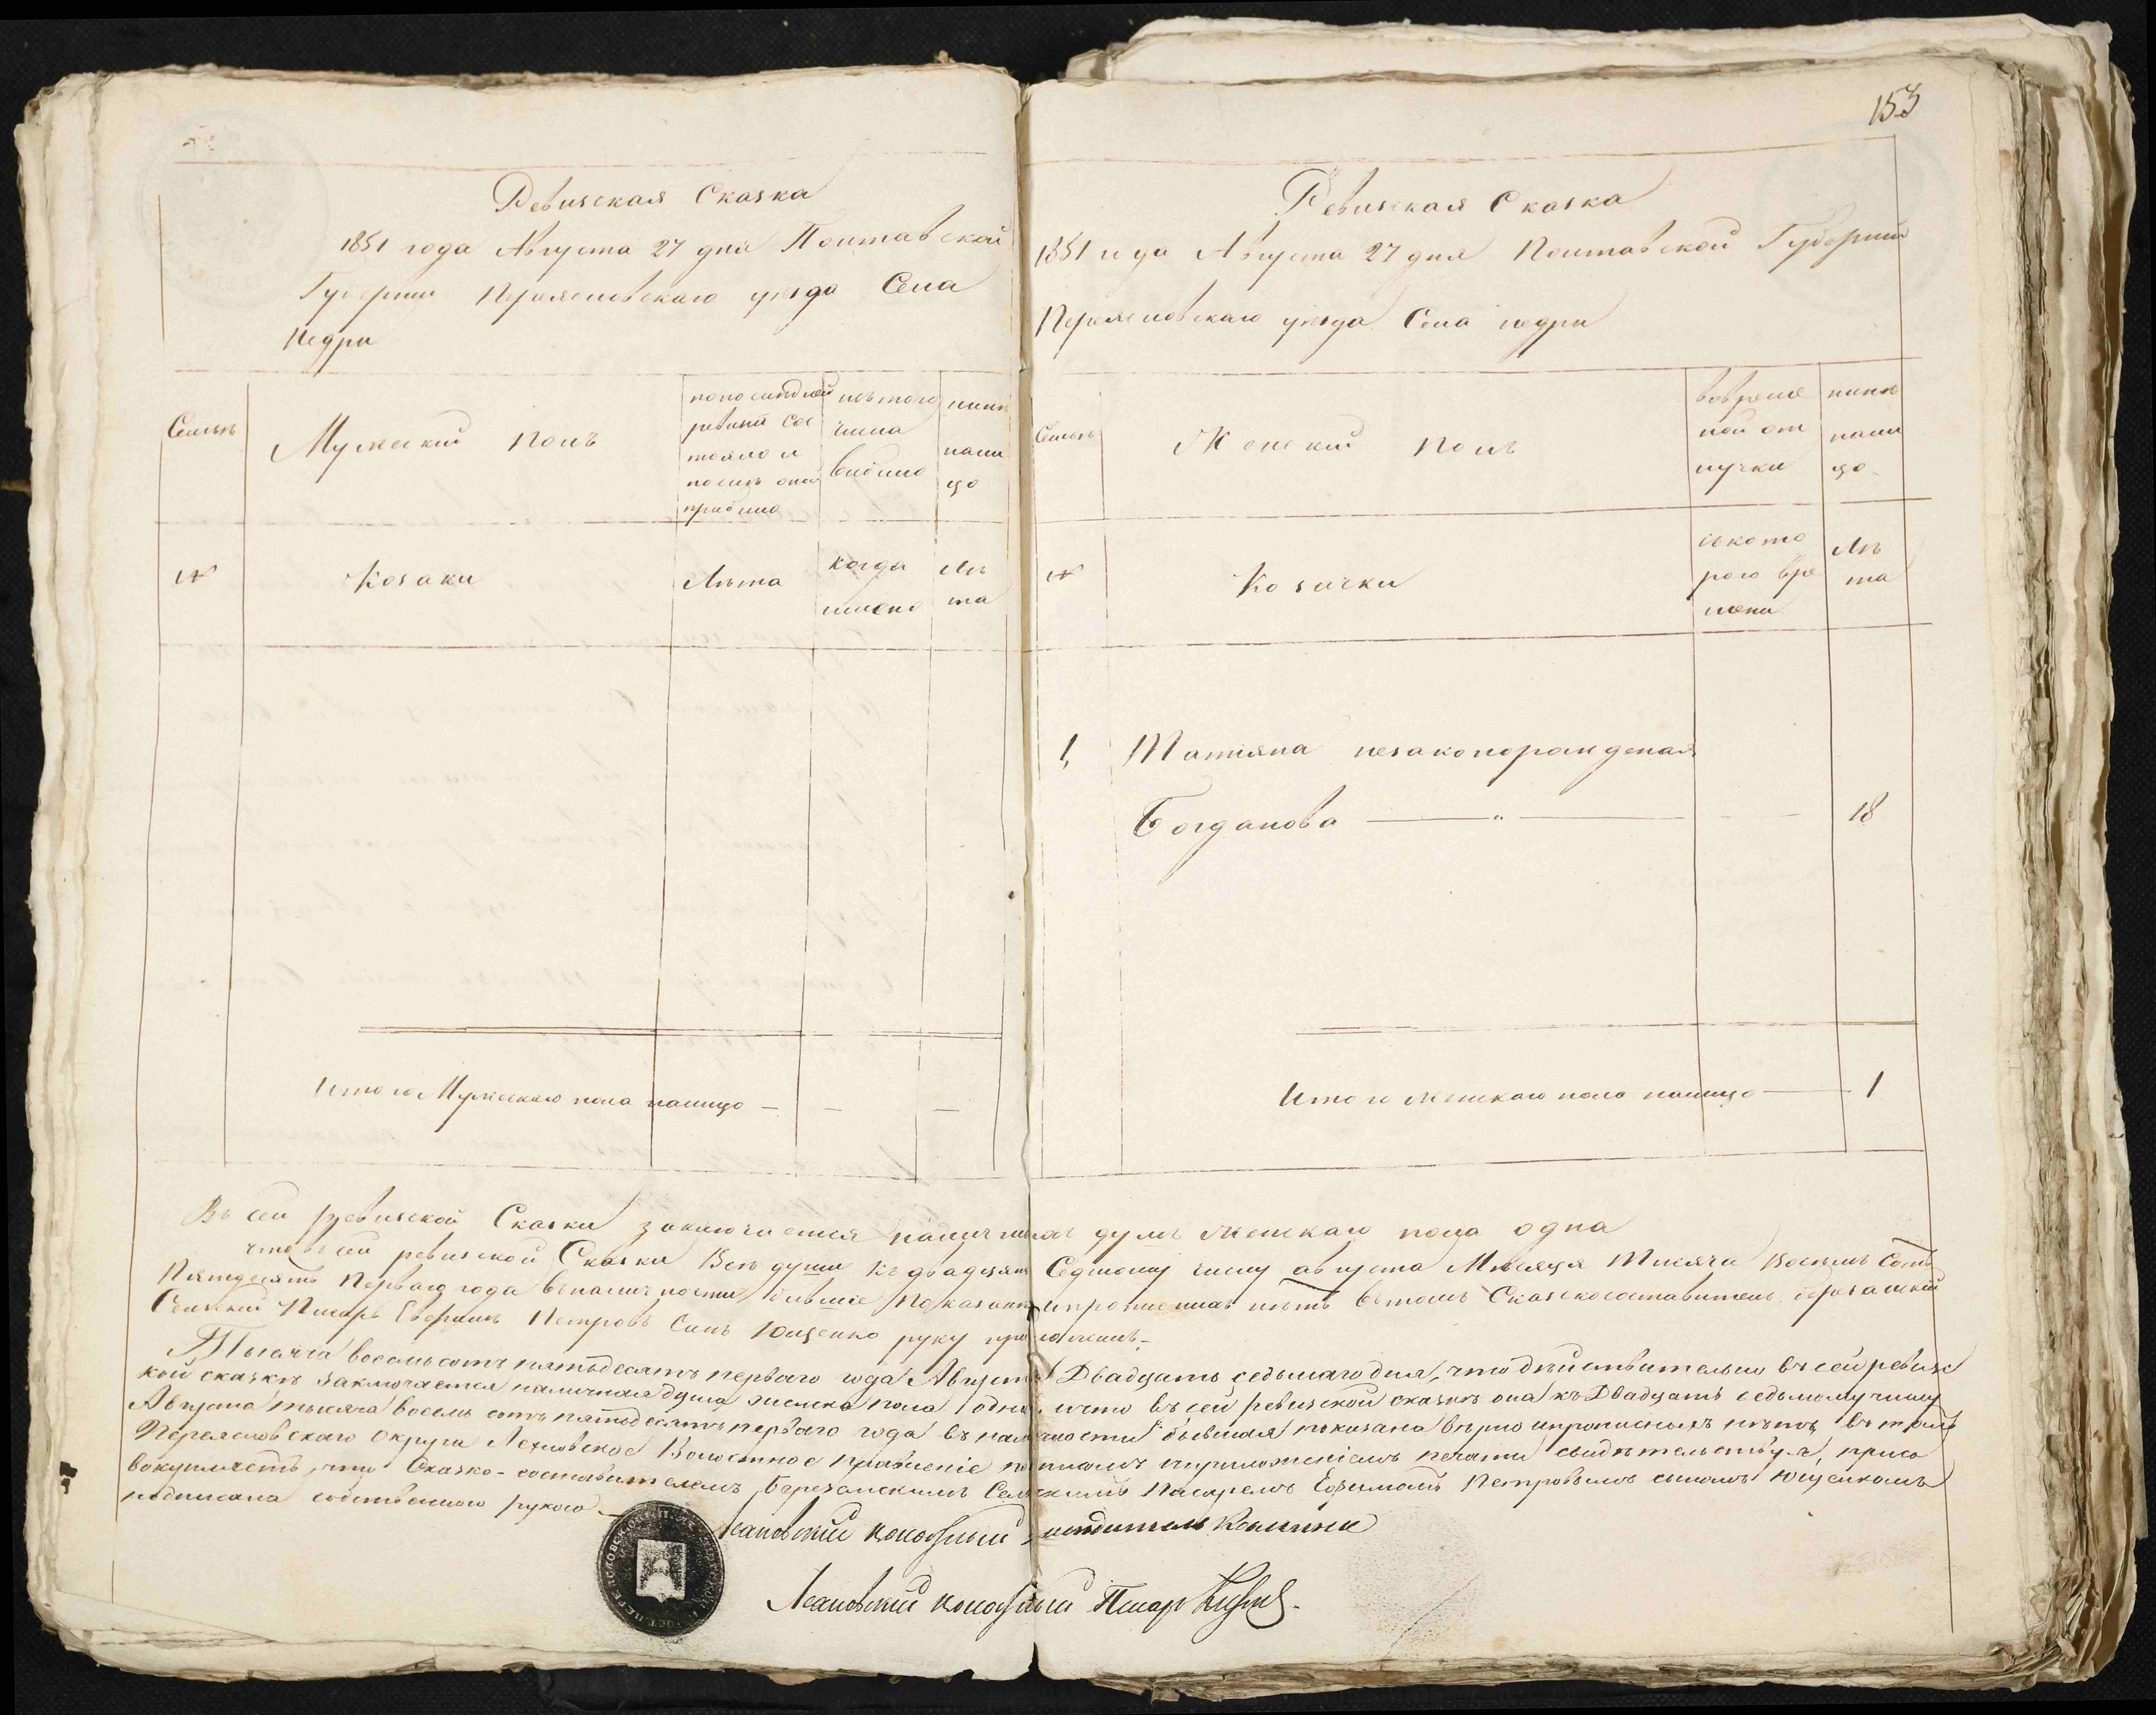 153
Ревизская Сказка
1851 года Августа 27 дня Полтавской
Губернии Переяславскаго уезда Села
Недри
Семьи
Мужеский полъ
по последней
ревизии сос
тояло и
после оной
прибыло
изъ того
числа
выбыло
ныне
нали
цо
№
Козаки
Лета
когда
имено
Ле
та
Итого Мужескаго пола налицо — — —
Ревизская Сказка
1851 года Августа 27 дня Полтавской Губернии
Переяславскаго уезда Села недри
Семьи
Женский полъ
вовремен
ной от
лучки
ныне
нали
цо
№
Козачки
ското
рого вре
мени
Ле
та
1, Матияна незаконорожденая
Богданова — " — — — 18
Итого женскаго пола налицо — 1
Въ сей ревизской Сказки заключается наличныхъ душъ женскаго пола одна
что всей ревизской Сказки Все души къ двадцать Седмому числу августа Месяца Тисяча Восемъ Сотъ
Пятдесятъ Перваго года вналичности бившие Показани ипрописныхъ нетъ втомъ Сказкосоставитель березанский
Селский Писарь Ефримъ Петровъ Синъ Ющенко руку приложилъ
Тысяча восемьсотъ пятьдесятъ перваго года Августа Двадцать седьмаго дня, что действительно въ сей ревизс
кой сказкѣ заключается наличная душа женска пола одна, ичто въ сей ревизской сказкѣ она къ Двадцать седьмому числу
Августа тысяча восемь сотъ пятьдесятъ перваго года въ наличности бывшая показана вѣрно ипрописныхъ нѣтъ, въ томъ
Переяславскаго Округа Волостное правление приложеніемъ печати свидѣтельствуя, приса
вокупляетъ, что Сказко-составителемъ Березанскимъ Сельскимъ Писаремъ Ефимомъ Петровымъ сыномъ Ющенкомъ
подписана собственною рукою